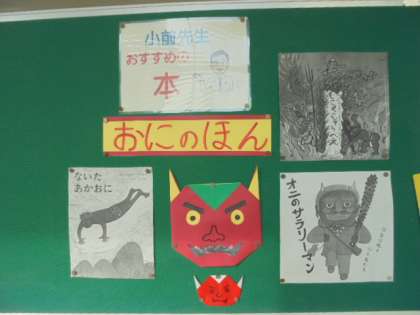 小前先生
おすすめの
本
おにのほん
ないた
あかおに
オニのサラリーマン